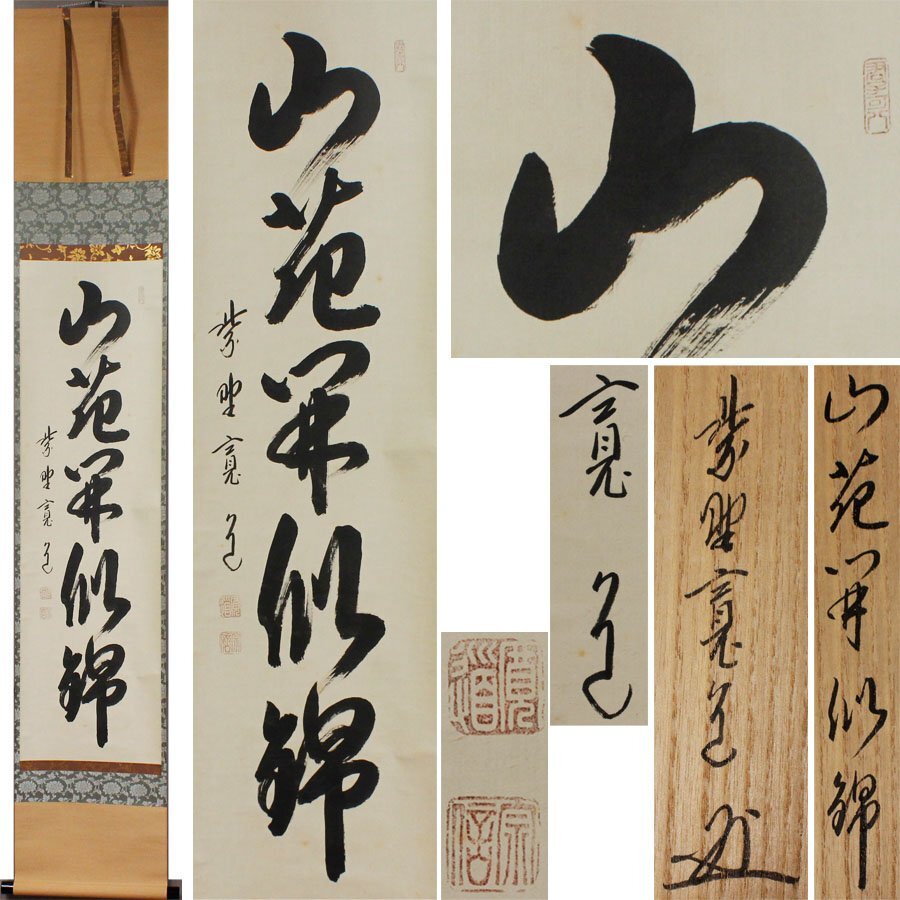 山花開似錦
紫野寛道
山花開似錦
紫野寛道
山
山花開似錦
紫野寛道
寛道
寛道
宗信